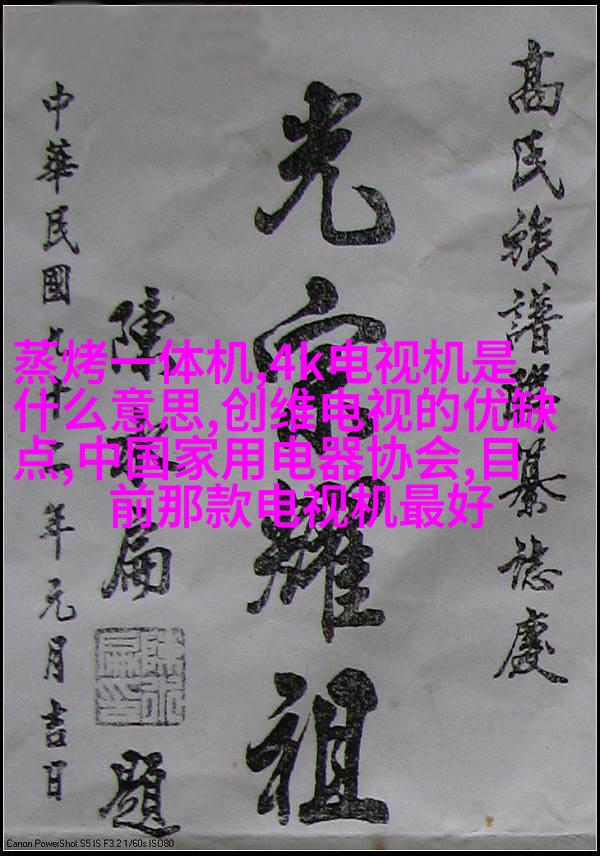 高氏族譜聯纂誌慶
光宗耀祖
陳水扁題
中華民國九十二年元月吉日
蒸烤一体机,4k电视机是
什么意思,创维电视的优缺
点,中国家用电器协会,目
前那款电视机最好
Canon PowerShot S5 IS F3.2 1/60s ISO80